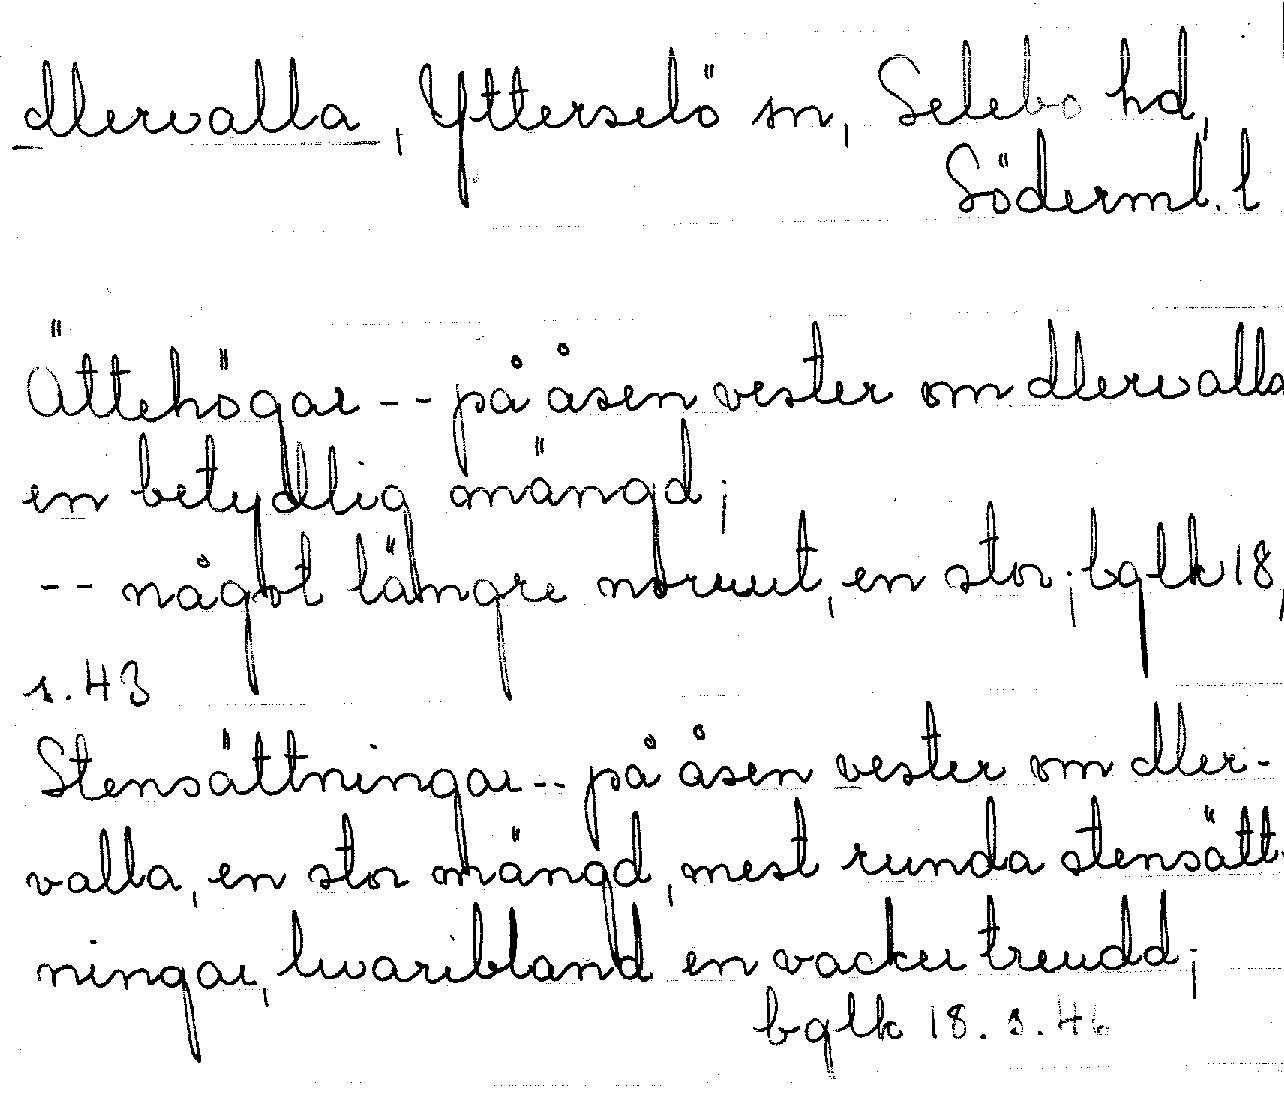 dlervalla, Ytterselö sn, Selebo hd,
Söderml. l
Ättehögar -- på åsen vester om dlervalla
en betydlig mängd;
-- något längre norrut, en stor; bglk 18,
s. 43
Stensättningar -- på åsen vester om dler-
valla, en stor mängd, mest runda stensätt-
ningar, hvaribland en vacker treudd;
bglk 18. s. 46